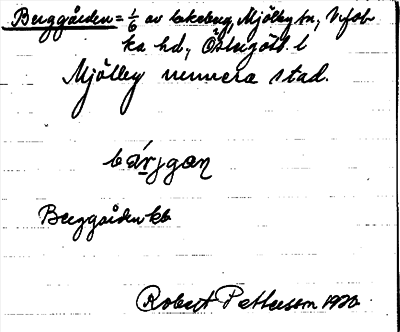 Berggården = 1/6 av Lakeberg, Mjölby sn, Vifol-
ka hd, Östergötl. l
Mjölby numera stad.
bárjgan
Berggården kb
Robert Petterson 1920